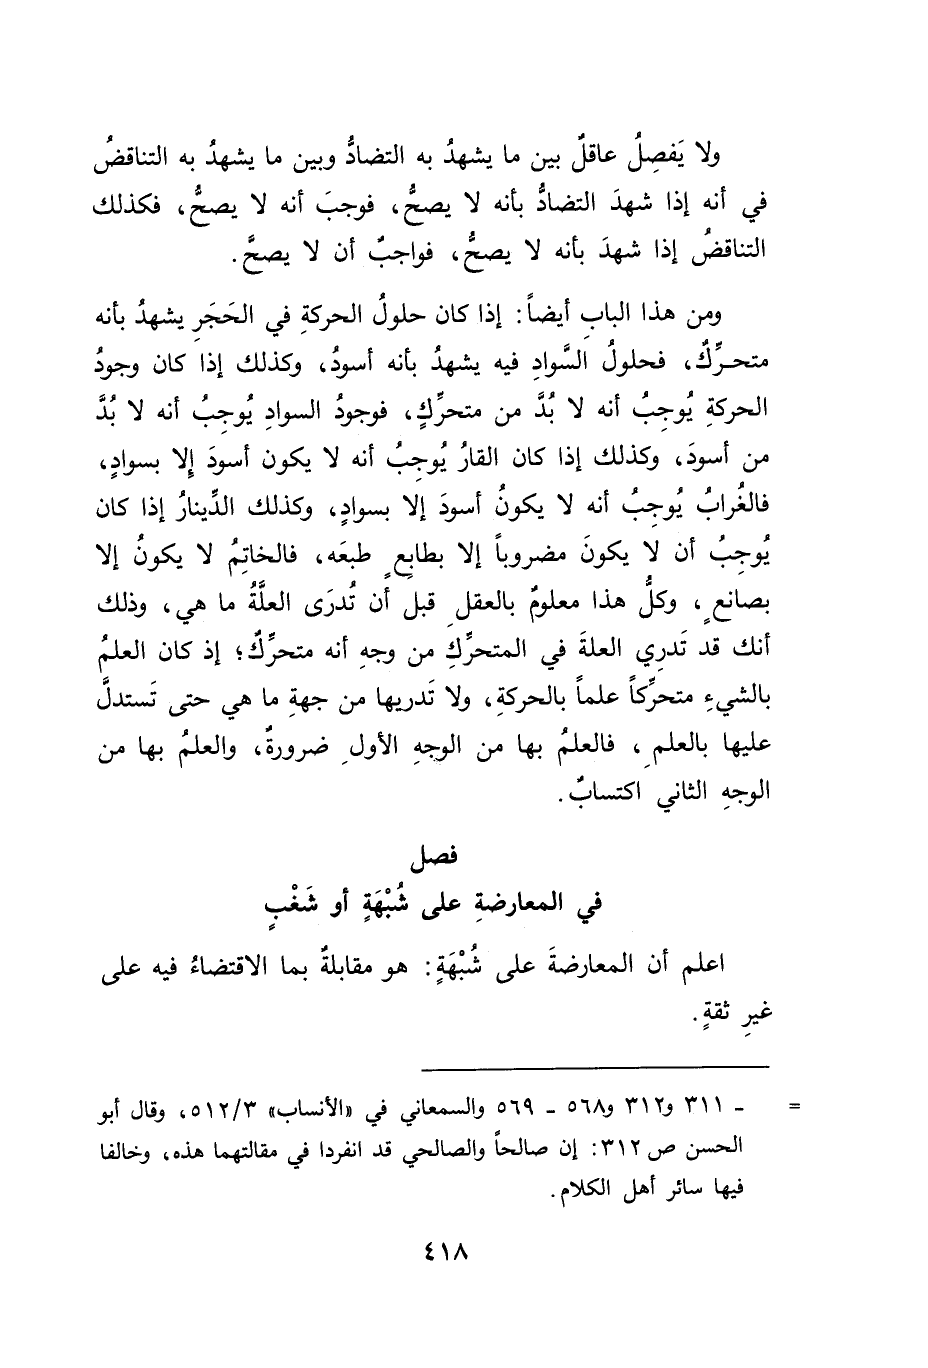 ولا يَفصِلُ عاقلٌ بين ما يشهدُ به التضادُّ وبين ما يشهدُ به التناقضُ
في أنه إذا شهدَ التضادُّ بأنه لا يصحُّ، فوجبَ أنه لا يصحُّ، فكذلك
التناقضُ إذا شهدَ بأنه لا يصحُّ، فواجبٌ أن لا يصحَّ.
ومن هذا البابِ أيضاً: إذا كان حلولُ الحركةِ في الحَجَرِ يشهدُ بأنه
متحرِّكٌ، فحلولُ السَّوادِ فيه يشهدُ بأنه أسودُ، وكذلك إذا كان وجودُ
الحركةِ يُوجِبُ أنه لا بُدَّ من متحرِّكٍ، فوجودُ السوادِ يُوجِبُ أنه لا بُدَّ
من أسودَ، وكذلك إذا كان القارُ يُوجِبُ أنه لا يكون أسودَ إلا بسوادٍ،
فالغُرابُ يُوجِبُ أنه لا يكونُ أسودَ إلا بسوادٍ، وكذلك الدِّينارُ إذا كان
يُوجِبُ أن لا يكونَ مضروباً إلا بطابِعٍ طبعَه، فالخاتِمُ لا يكونُ إلا
بصانعٍ، وكلُّ هذا معلومٌ بالعقلِ قبل أن تُدرَى العلَّةُ ما هي، وذلك
أنك قد تَدرِي العلةَ في المتحرِّكِ من وجهِ أنه متحرِّكٌ؛ إذ كان العلمُ
بالشيءِ متحرِّكاً علماً بالحركةِ، ولا تَدريها من جهةِ ما هي حتى تَستدلَّ
عليها بالعلمِ، فالعلمُ بها من الوجهِ الأولِ ضرورةٌ، والعلمُ بها من
الوجهِ الثاني اكتسابٌ.
فصل
في المعارضةِ على شُبْهَةٍ أو شَغْبٍ
اعلم أن المعارضةَ على شُبْهَةٍ: هو مقابلةٌ بما الاقتضاءُ فيه على
غيرِ ثقةٍ.
= ـ ٣١١ و٣١٢ و٥٦٨ ـ ٥٦٩ والسمعاني في «الأنساب» ٥١٢/٣، وقال أبو
الحسن ص ٣١٢: إن صالحاً والصالحي قد انفردا في مقالتهما هذه، وخالفا
فيها سائر أهل الكلام.
٤١٨